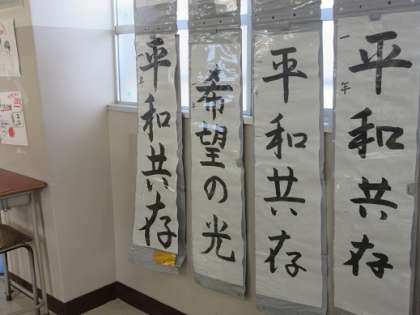 平和共存
一年
平和共存
希望の光
平和共存